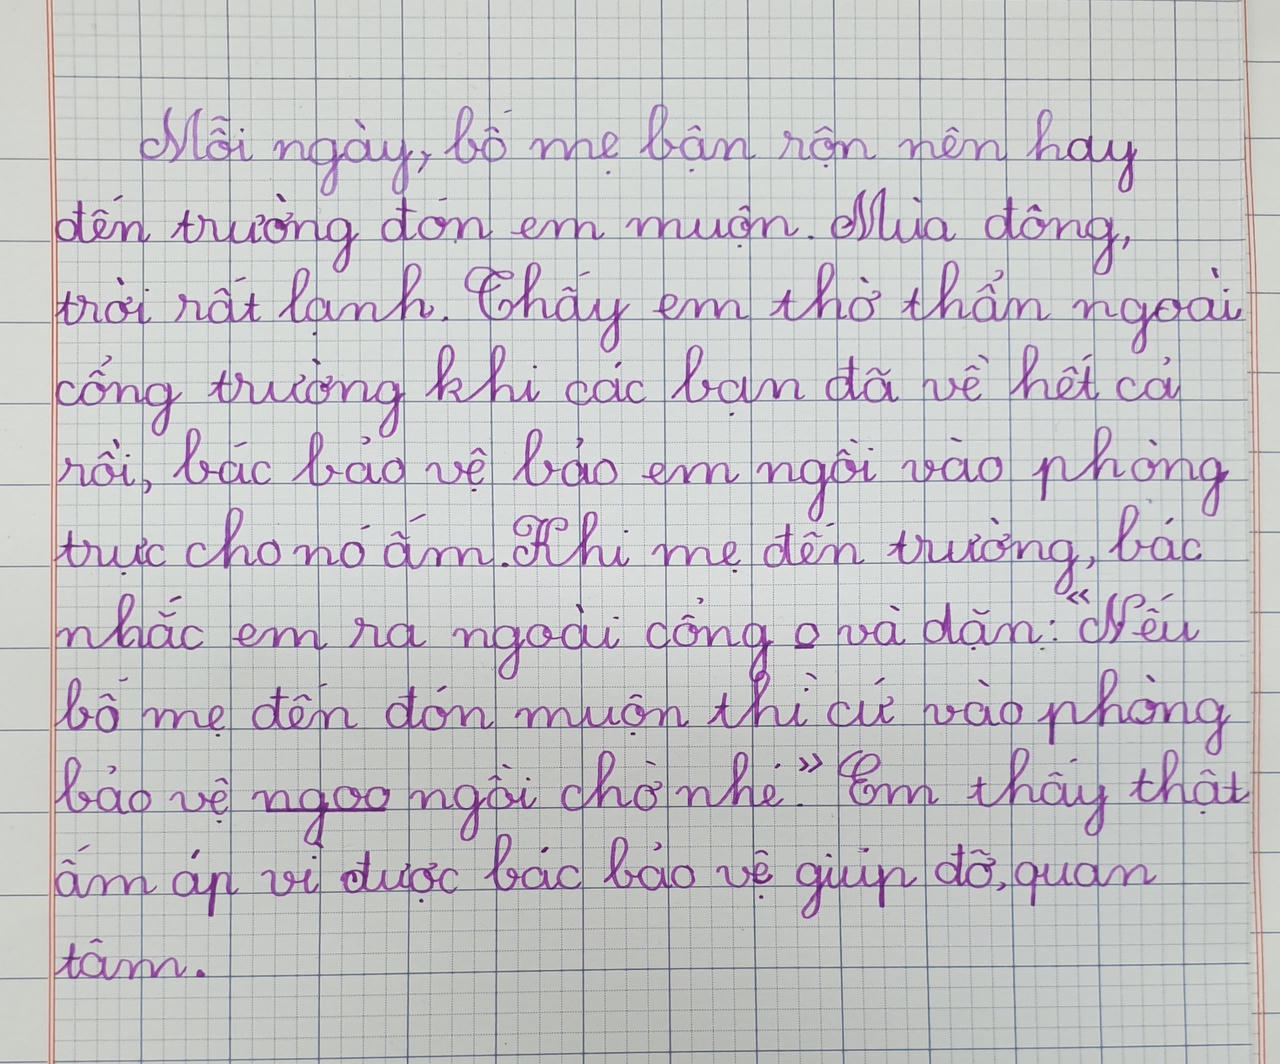 Mỗi ngày, bố mẹ bận rộn nên hay
đến trường đón em muộn. Mùa đông,
trời rất lạnh. Thấy em thờ thẩn ngoài
cổng trường khi các bạn đã về hết cả
rồi, bác bảo vệ bảo em ngồi vào phòng
trực cho nó ấm. Khi mẹ đến trường, bác
nhắc em ra ngoài cổng và dặn: "Nếu
bố mẹ đến đón muộn thì cứ vào phòng
bảo vệ ngoo ngồi chờ nhé." Em thấy thật
ấm áp vì được bác bảo vệ giúp đỡ, quan
tâm.